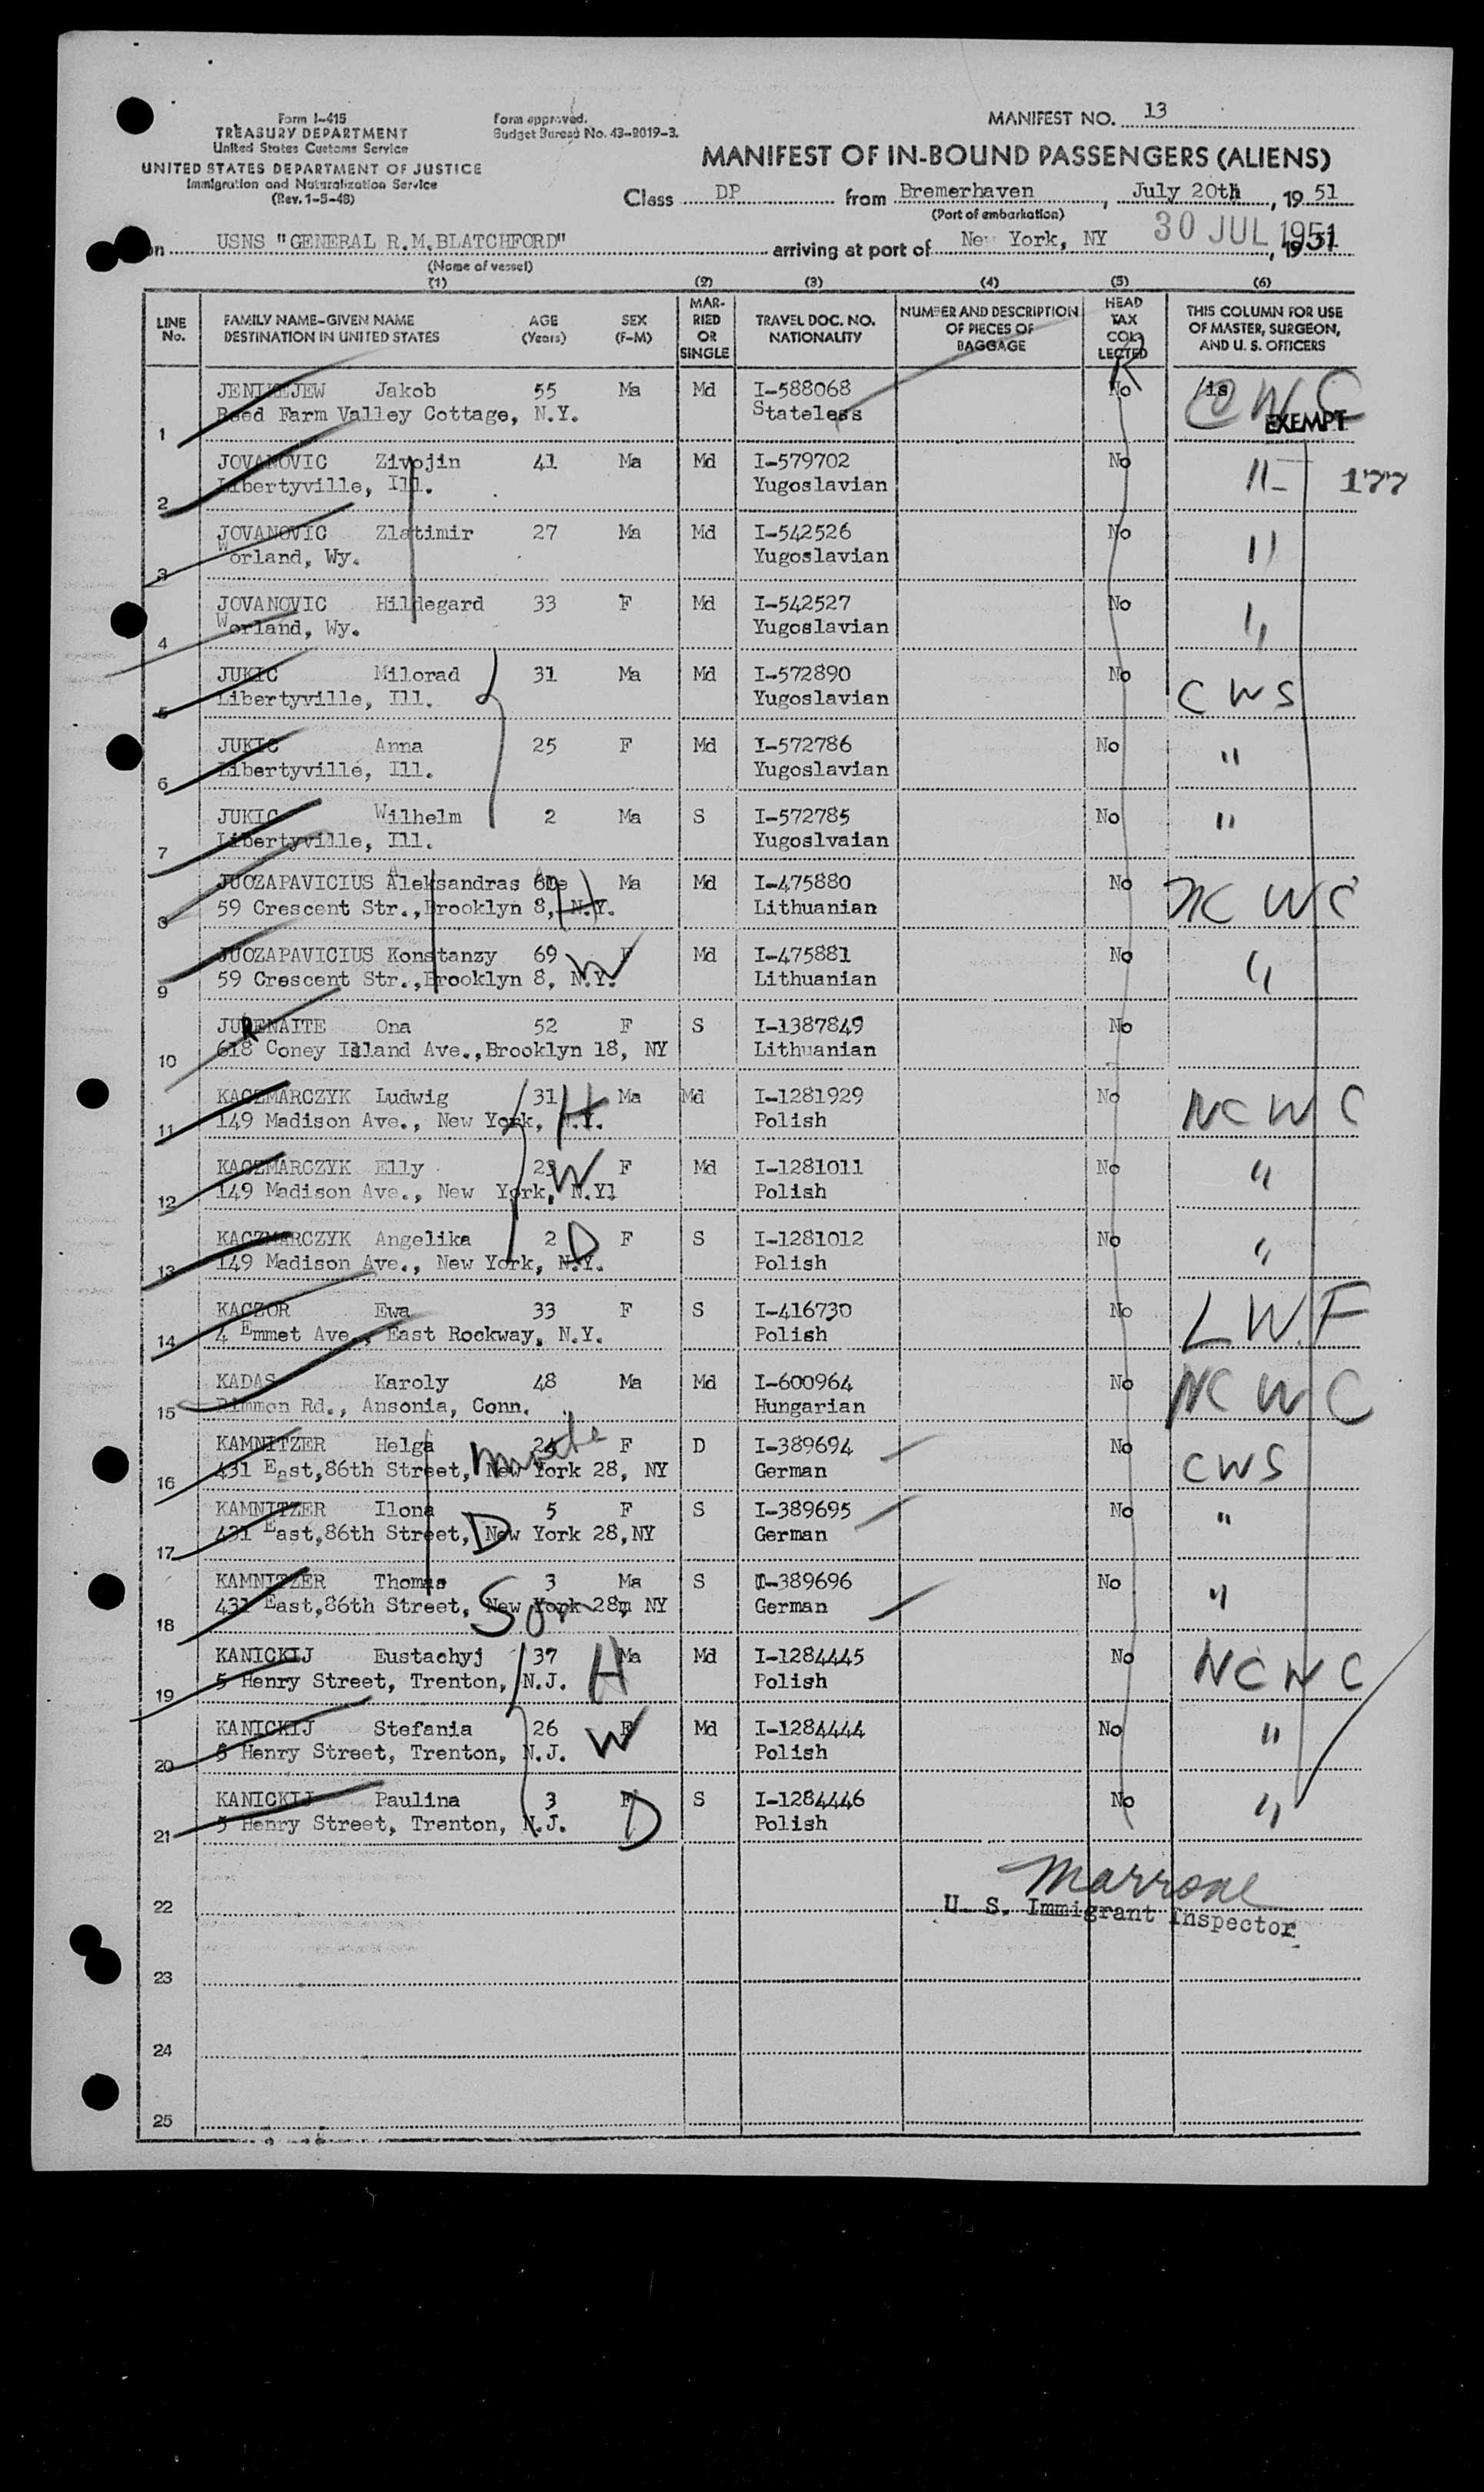 Form I-415
TREASURY DEPARTMENT
United States Customs Service
UNITED STATES DEPARTMENT OF JUSTICE
Immigration and Naturalization Service
(Rev. 1-5-48)
Form approved.
Budget Bureau No. 43-R019-3.
MANIFEST NO. 13
MANIFEST OF IN-BOUND PASSENGERS (ALIENS)
Class DP from Bremerhaven, July 20th, 19 51
(Port of embarkation)
on USNS "GENERAL R.M.BLATCHFORD" arriving at port of New York, NY 30 JUL 1951, 19
(Name of vessel)
(1) (2) (3) (4) (5) (6)
LINE No. FAMILY NAME-GIVEN NAME DESTINATION IN UNITED STATES AGE (Years) SEX (F-M) MARRIED OR SINGLE TRAVEL DOC. NO. NATIONALITY NUMBER AND DESCRIPTION OF PIECES OF BAGGAGE HEAD TAX COLLECTED THIS COLUMN FOR USE OF MASTER, SURGEON, AND U. S. OFFICERS
JENIKEJEW Jakob 55 Ma Md I-588068 No
1 Reed Farm Valley Cottage, N.Y. Stateless EXEMPT
JOVANOVIC Zivojin 41 Ma Md I-579702 No " 177
2 Libertyville, Ill. Yugoslavian
JOVANOVIC Zlatimir 27 Ma Md I-542526 No "
3 Worland, Wy. Yugoslavian
JOVANOVIC Hildegard 33 F Md I-542527 No "
4 Worland, Wy. Yugoslavian
JUKIC Milorad 31 Ma Md I-572890 No CWS
5 Libertyville, Ill. Yugoslavian
JUKIC Anna 25 F Md I-572786 No "
6 Libertyville, Ill. Yugoslavian
JUKIC Wilhelm 2 Ma S I-572785 No "
7 Libertyville, Ill. Yugoslvaian
JUOZAPAVICIUS Aleksandras Ma Md I-475880 No NCWC
8 59 Crescent Str.,Brooklyn 8, N.Y. H Lithuanian
JUOZAPAVICIUS Konstanzy 69 F W Md I-475881 No "
9 59 Crescent Str.,Brooklyn 8, N.Y. Lithuanian
JURENAITE Ona 52 F S I-1387849 No
10 618 Coney Island Ave.,Brooklyn 18, NY Lithuanian
KACZMARCZYK Ludwig 31 H Ma Md I-1281929 No NCWC
11 149 Madison Ave., New York, N.Y. Polish
KACZMARCZYK Elly W F Md I-1281011 No "
12 149 Madison Ave., New York, N.Yl Polish
KACZMARCZYK Angelika 2 D F S I-1281012 No "
13 149 Madison Ave., New York, N.Y. Polish
KACZOR Ewa 33 F S I-416730 No LWF
14 4 Emmet Ave., East Rockway, N.Y. Polish
KADAS Karoly 48 Ma Md I-600964 No NCWC
15 Rimmon Rd., Ansonia, Conn. Hungarian
KAMNITZER Helga F D I-389694 No CWS
16 431 East,86th Street, New York 28, NY German
KAMNITZER Ilona 5 F S I-389695 No "
17 431 East,86th Street, D New York 28,NY German
KAMNITZER Thomas 3 Ma S I-389696 No "
18 431 East,86th Street, Son New York 28m NY German
KANICKIJ Eustachyj 37 H Ma Md I-1284445 No NCWC
19 5 Henry Street, Trenton, N.J. Polish
KANICKIJ Stefania 26 W F Md I-1284444 No "
20 5 Henry Street, Trenton, N.J. Polish
KANICKIJ Paulina 3 F D S I-1284446 No "
21 5 Henry Street, Trenton, N.J. Polish
Marrone
22 U. S. Immigrant Inspector
23
24
25